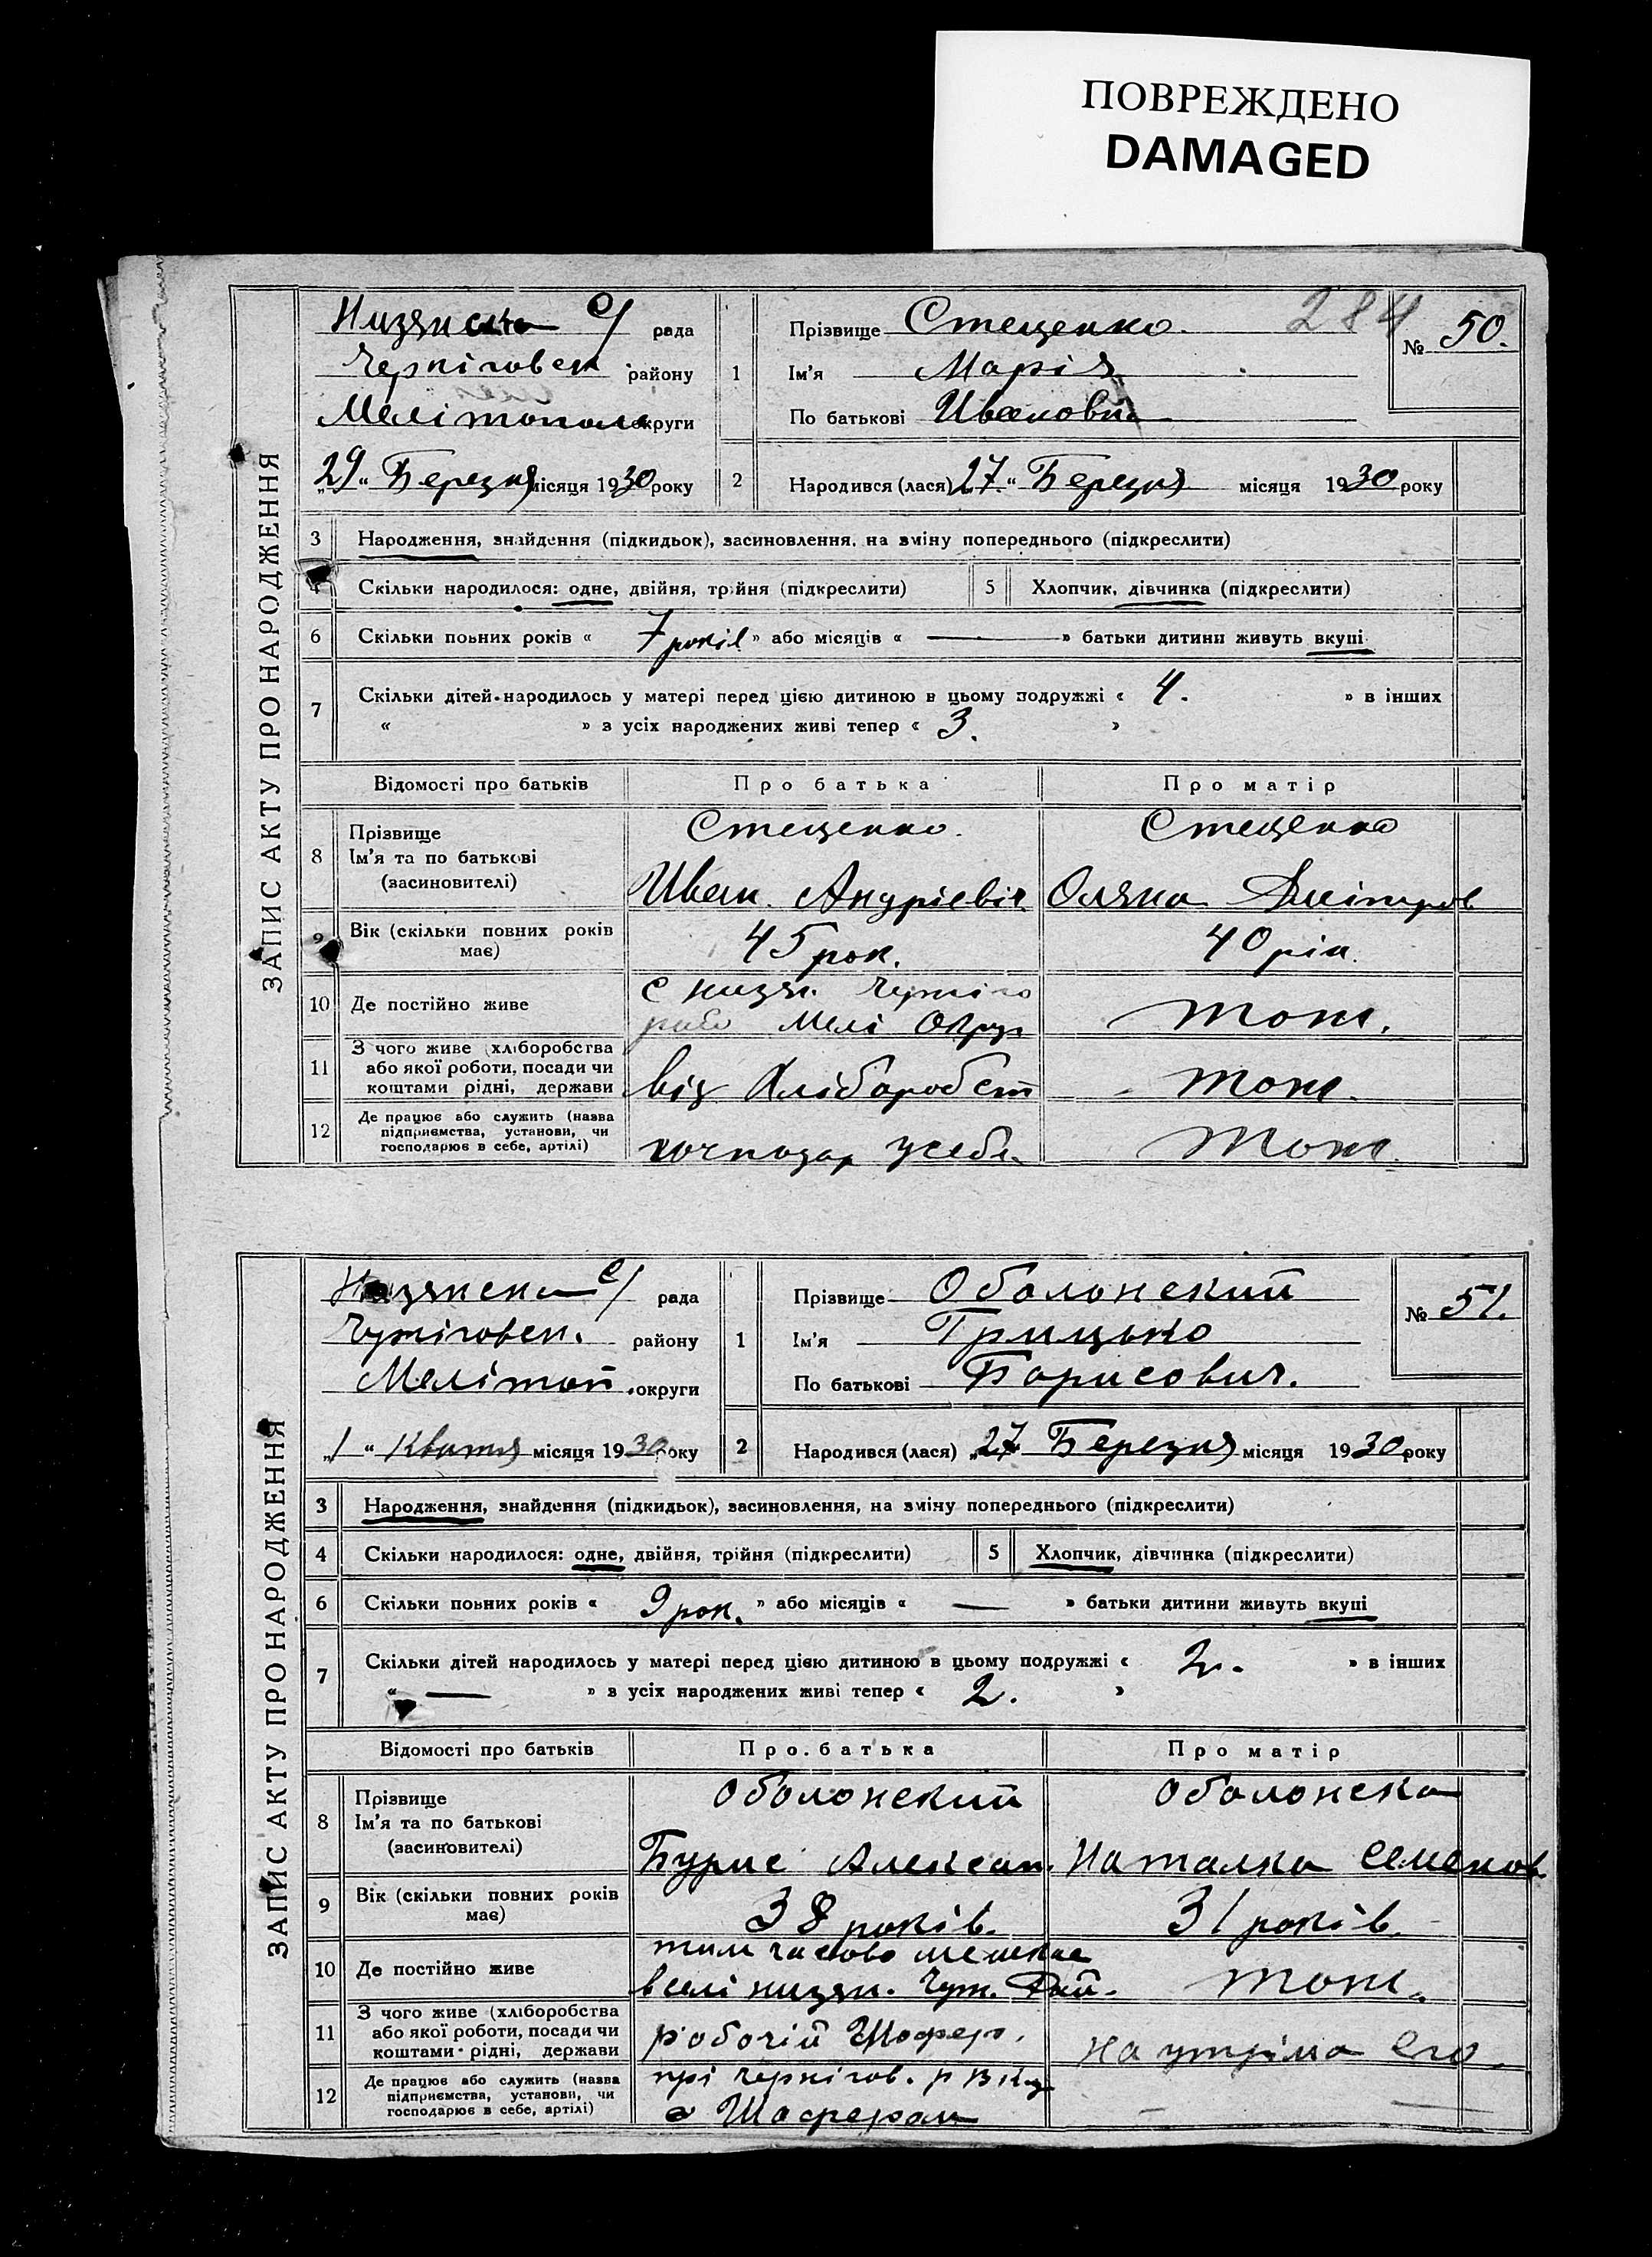 ПОВРЕЖДЕНО
DAMAGED
284
ЗАПИС АКТУ ПРО НАРОДЖЕННЯ
Низянска с/ рада
Чернiговск району
Мелiтополь округи
„29“ Березня місяця 1930 року
1 Прізвище Стеценко
Ім'я Марія
По батькові Ивановна
№ 50.
2 Народився (лася) „27“ Березня місяця 1930 року
3 Народження, знайдення (підкидьок), засиновлення, на зміну попереднього (підкреслити)
4 Скільки народилося: одне, двійня, трійня (підкреслити) 5 Хлопчик, дівчинка (підкреслити)
6 Скільки повних років « 7 років » або місяців « — » батьки дитини живуть вкупі
7 Скільки дітей народилось у матері перед цією дитиною в цьому подружжі « 4. » в інших
« » з усіх народжених живі тепер « 3. »
Відомості про батьків Про батька Про матір
8 Прізвище Ім'я та по батькові (засиновителі)
Стеценко. Стеценко
Иван Андрієвіч Оляна
9 Вік (скільки повних років має) 45 рок. 40 рік.
10 Де постійно живе
с низян. Черніго
Мелі Округ тож.
11 З чого живе (хліборобства або якої роботи, посади чи коштами рідні, держави
від Хліборобст тож.
12 Де працює або служить (назва підприємства, установи, чи господарює в себе, артілі)
господар усебе тож
ЗАПИС АКТУ ПРО НАРОДЖЕННЯ
Низянска с/ рада
Черніговск. району
Мелітоп. округи
„1“ Квітня місяця 1930 року
1 Прізвище Оболонский
Ім'я Грицько
По батькові Борисович.
№ 51.
2 Народився (лася) „27“ Березня місяця 1930 року
3 Народження, знайдення (підкидьок), засиновлення, на зміну попереднього (підкреслити)
4 Скільки народилося: одне, двійня, трійня (підкреслити) 5 Хлопчик, дівчинка (підкреслити)
6 Скільки повних років « 9 рок. » або місяців « — » батьки дитини живуть вкупі
7 Скільки дітей народилось у матері перед цією дитиною в цьому подружжі « 2. » в інших
« — » в усіх народжених живі тепер « 2. »
Відомості про батьків Про батька Про матір
8 Прізвище Ім'я та по батькові (засиновителі)
Оболонский Оболонска
Бурис Алексан. Наталка Семенов
9 Вік (скільки повних років має) 38 років. 31 років.
10 Де постійно живе
тимчасово мешкае
в селі низян. Чер. Рай. тож.
11 З чого живе (хліборобства або якої роботи, посади чи коштами рідні, держави
робочій Шофер. на утріма его
12 Де працює або служить (назва підприємства, установи, чи господарює в себе, артілі)
прі Чернігов.
Шофером —